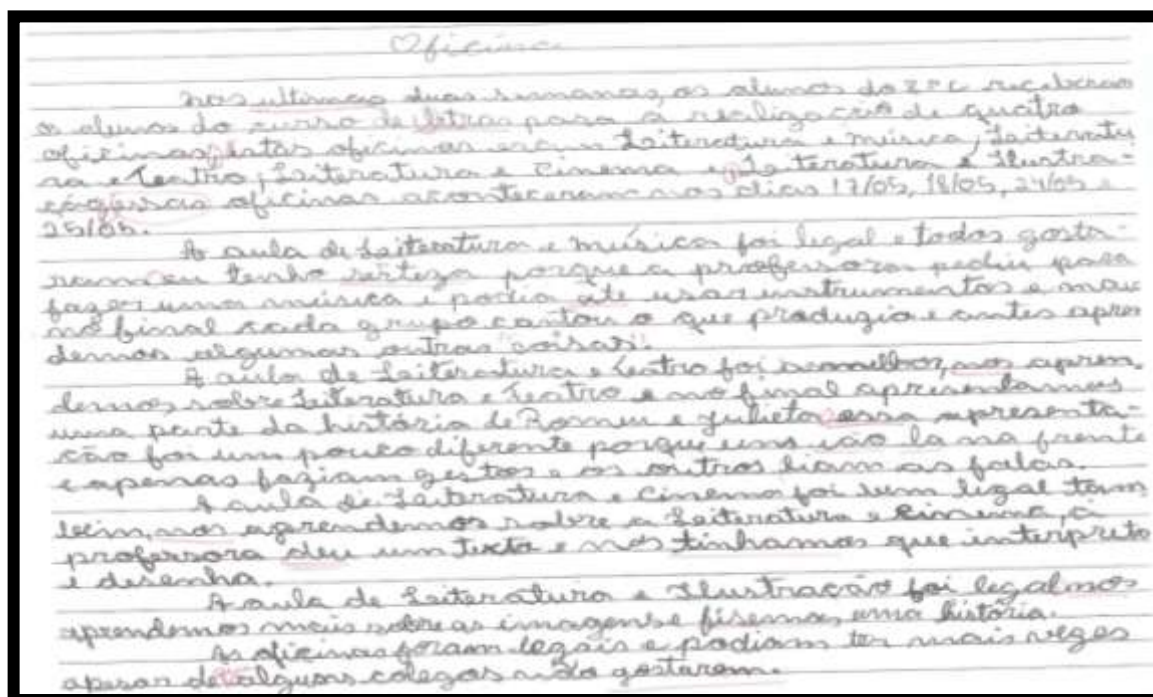 Oficina
nas ultimas duas semanas, os alunos do 2º C receberam
os alunos do curso de letras para a realização de quatro
oficinas, estas oficinas eram Leiteratura e música, Leiteratu
ra e teatro, Leiteratura e Cinema e Leiteratura e Ilustra-
ção essas oficinas aconteceram nos dias 17/05, 18/05, 24/05 e
25/05.
A aula de Leiteratura e música foi legal e todos gosta-
ram eu tenho serteza porque a professora pediu para
fazer uma música e podia até usar instrumentos e
no final cada grupo cantou o que produzio e antes apren
demos algumas outras "coisas".
A aula de Leiteratura e teatro foi a melhor, nos apren
demos sobre Leiteratura e teatro e no final apresentamos
uma parte da história de Romeu e Julieta essa apresenta-
ção foi um pouco diferente porque uns lá na frente
e apenas faziam gestos e os outros liam as falas.
A aula de Leiteratura e cinema foi bem legal tam
bém, nos aprendemos sobre a Leiteratura e cinema, a
professora deu um texto e nós tinhamos que interpreta
e desenha.
A aula de Leiteratura e Ilustração foi legal nos
aprendemos mais sobre as imagens e fisemos uma história.
As oficinas foram legais e podiam ter mais vezes
apesar de alguns colegas não gostarem.